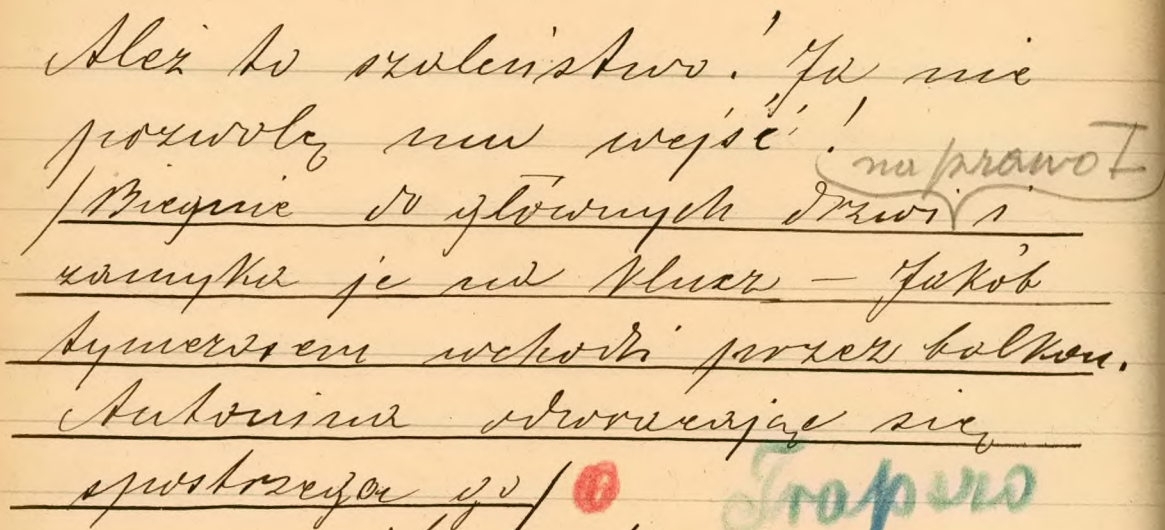 Ależ to szaleństwo! Ja nie
pozwolę mu wejść!
na prawo I
/Biegnie do głównych drzwi i
zamyka je na klucz – Jakób
tymczasem wchodzi przez balkon.
Antonina odwracając się
spostrzega go/